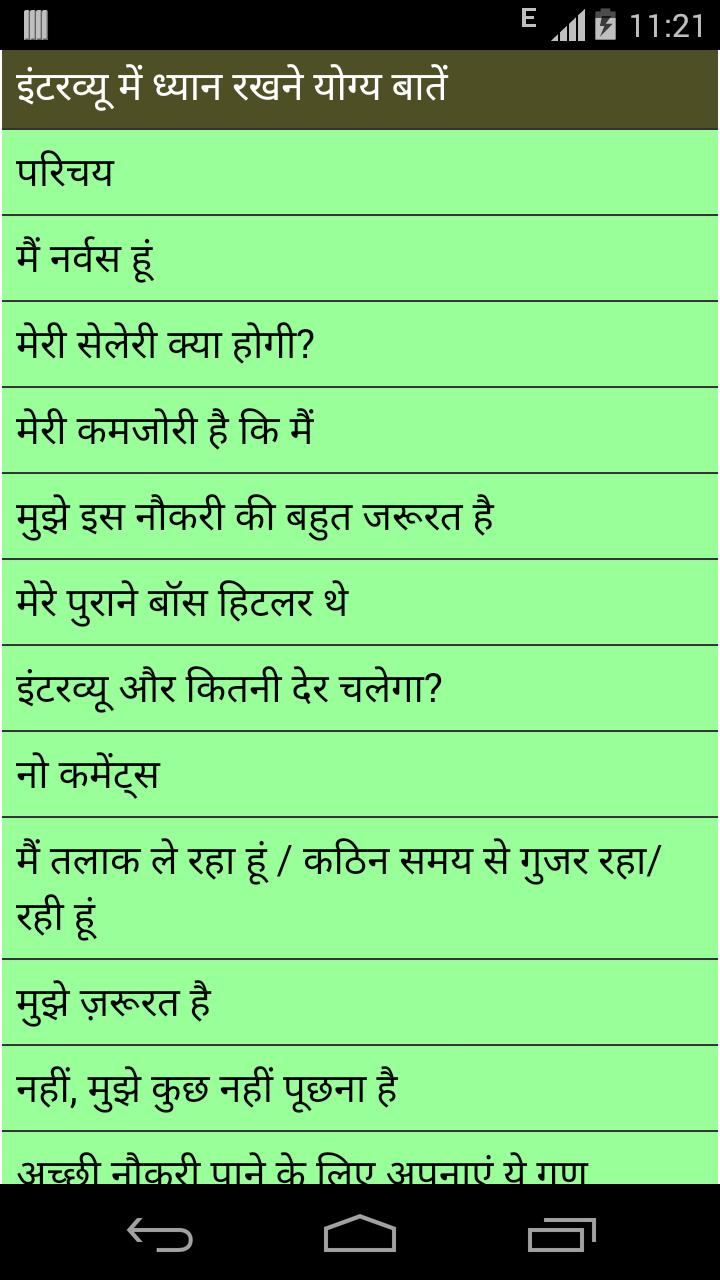 E 11:21
इंटरव्यू में ध्यान रखने योग्य बातें
परिचय
मैं नर्वस हूं
मेरी सेलेरी क्या होगी?
मेरी कमजोरी है कि मैं
मुझे इस नौकरी की बहुत जरूरत है
मेरे पुराने बॉस हिटलर थे
इंटरव्यू और कितनी देर चलेगा?
नो कमेंट्स
मैं तलाक ले रहा हूं / कठिन समय से गुजर रहा/
रही हूं
मुझे ज़रूरत है
नहीं, मुझे कुछ नहीं पूछना है
अच्छी नौकरी पाने के लिए अपनाएं ये गुण